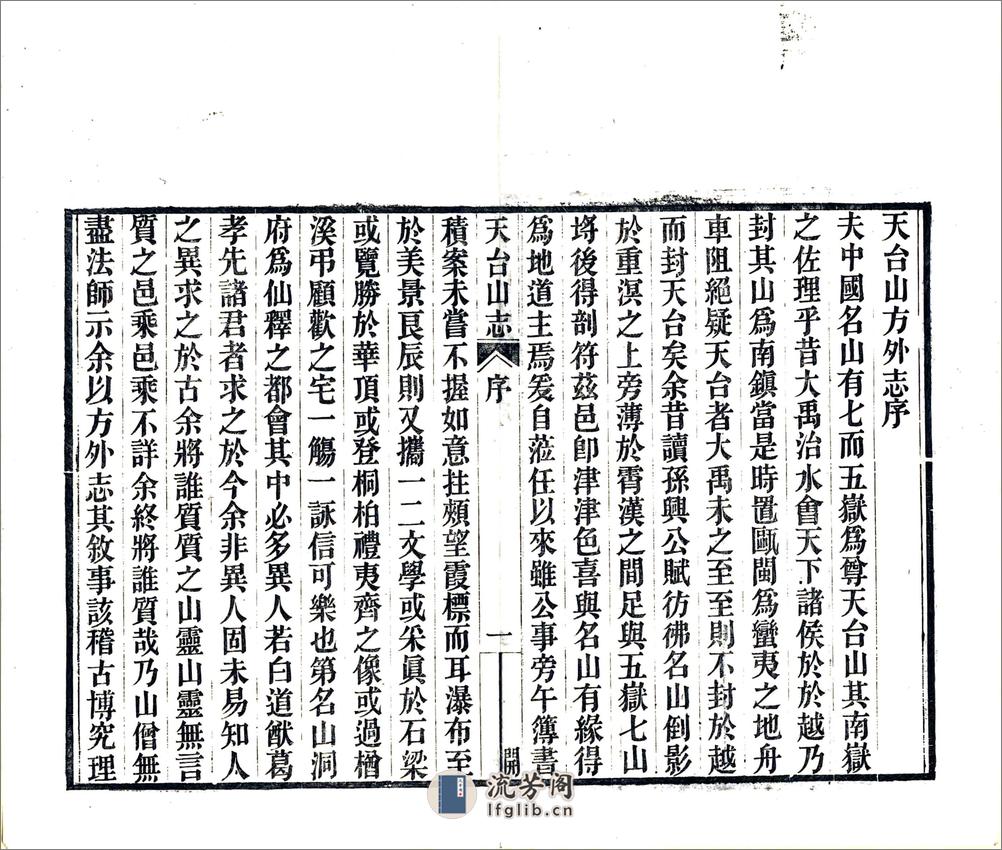 天台山方外志序
夫中國名山有七而五嶽爲尊天台山其南嶽
之佐理乎昔大禹治水會天下諸侯於於越乃
封其山爲南鎮當是時置甌閩爲蠻夷之地舟
車阻絕疑天台者大禹未之至至則不封於越
而封天台矣余昔讀孫興公賦彷彿名山倒影
於重溟之上旁薄於霄漢之間足與五嶽七山
埒後得剖符茲邑卽津津色喜與名山有緣得
爲地道主焉爰自蒞任以來雖公事旁午簿書
天台山志
序
一
開
積案未嘗不握如意拄頰望霞標而耳瀑布至
於美景良辰則又攜一二文學或采眞於石梁
或覽勝於華頂或登桐柏禮夷齊之像或過楢
溪弔顧歡之宅一觴一詠信可樂也第名山洞
府爲仙釋之都會其中必多異人若白道猷葛
孝先諸君者求之於今余非異人固未易知人
之異求之於古余將誰質質之山靈山靈無言
質之邑乘邑乘不詳余終將誰質哉乃山僧無
盡法師示余以方外志其敘事該稽古博究理
流芳阁
lfglib.cn